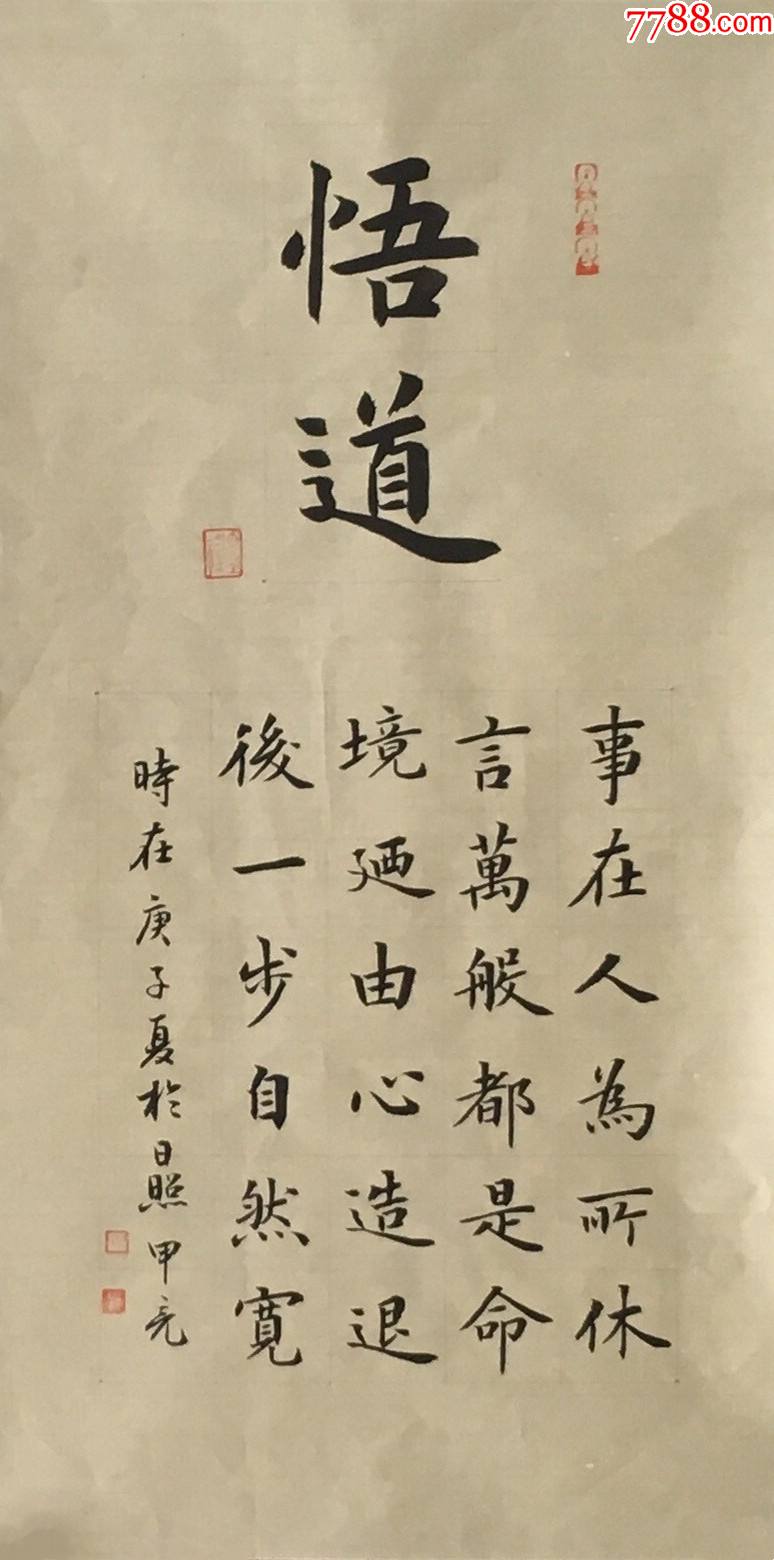 7788.com
悟道
事在人為所休
言萬般都是命
境廼由心造退
後一步自然寬
時在庚子夏於日照甲亮